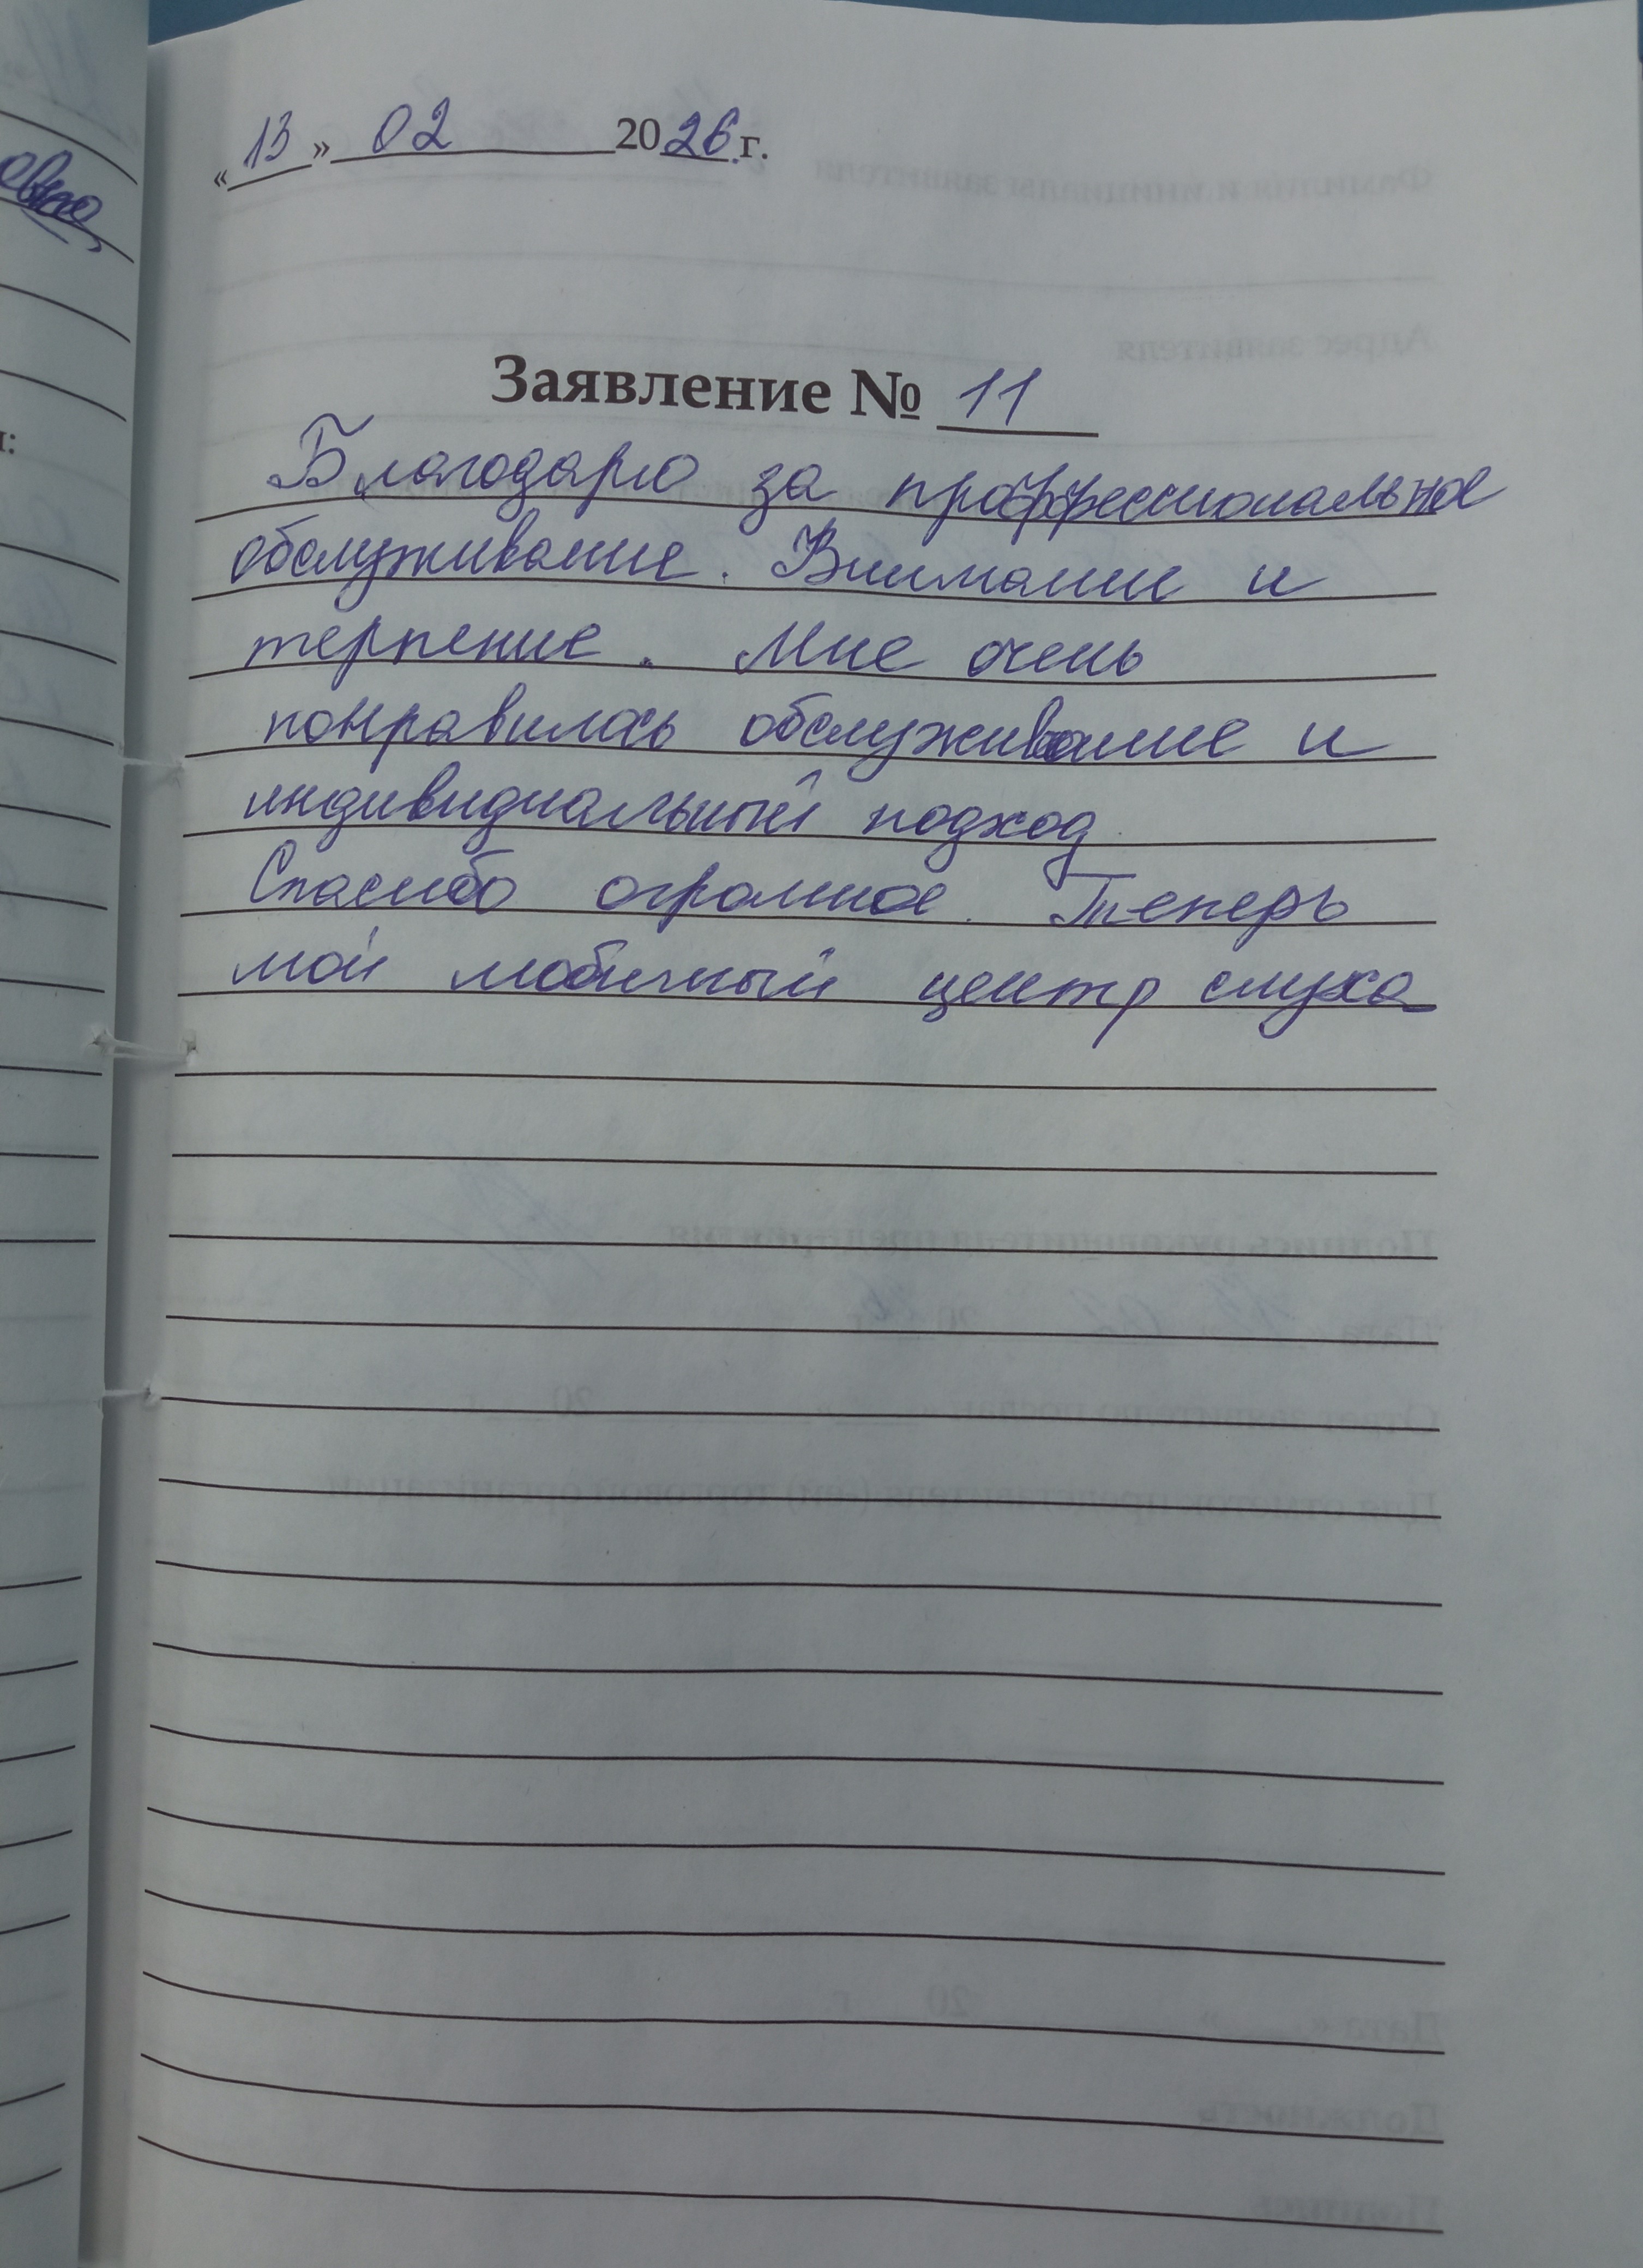 «13» 02 2026 г.
Заявление № 11
Благодарю за проффессиональное
обслуживание. Внимание и
терпение. Мне очень
понравилось обслуживание и
индивидуальный подход
Спасибо огромное. Теперь
мой любимый центр слуха